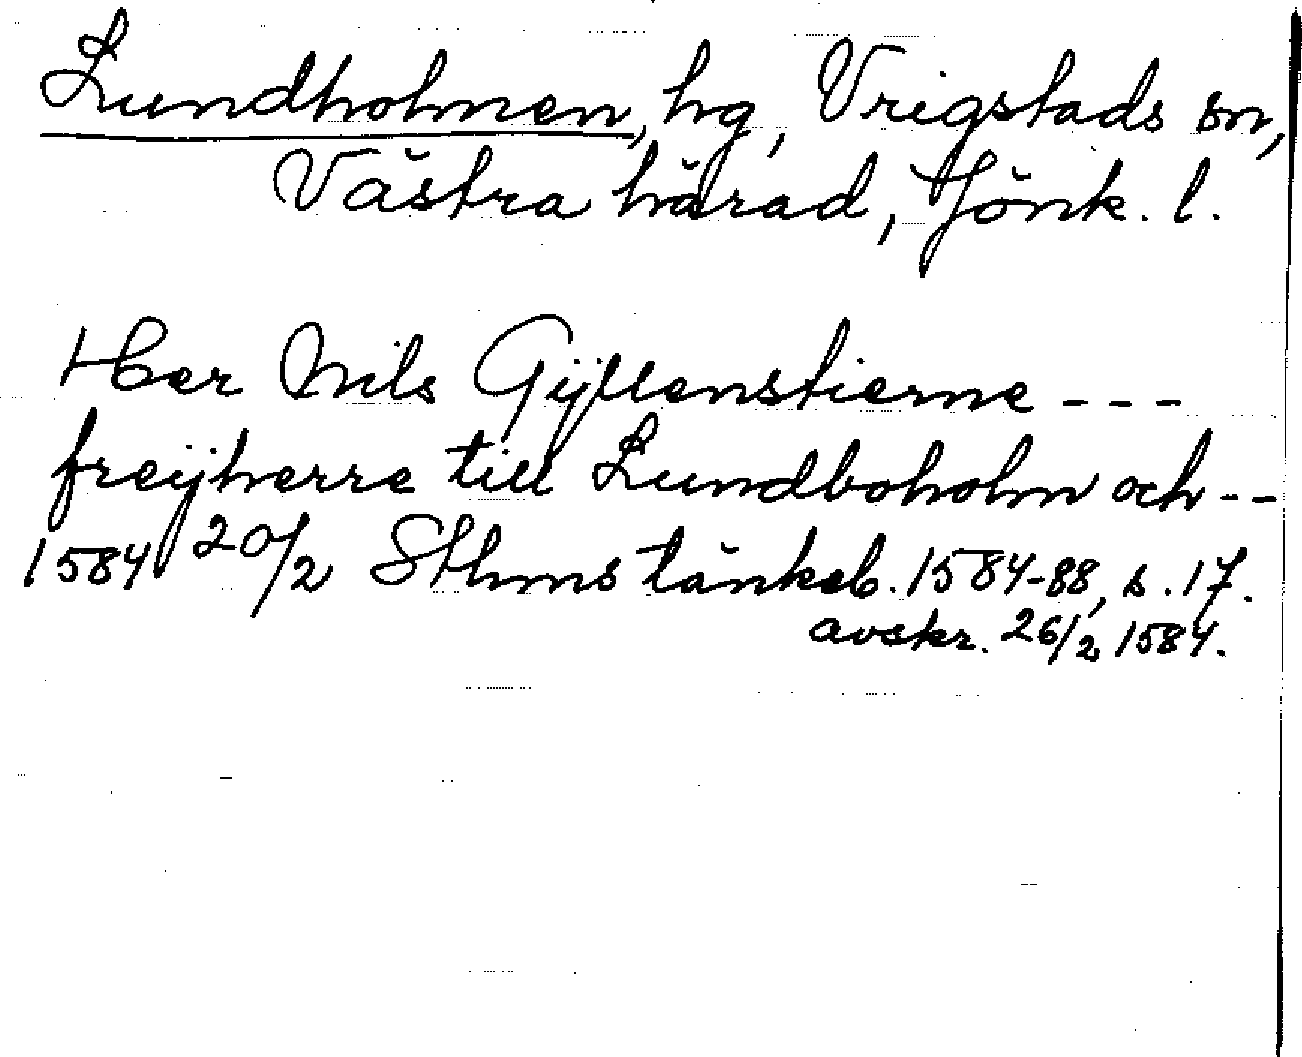 Lundholmen, hg, Vrigstads sn,
Västra härad, Jönk. l.
Her Nils Gÿllenstierne ---
freÿherre till Lundboholm och --
1584 20/2 Sthms tänkeb. 1584-88, s. 17.
avskr. 26/2 1584.